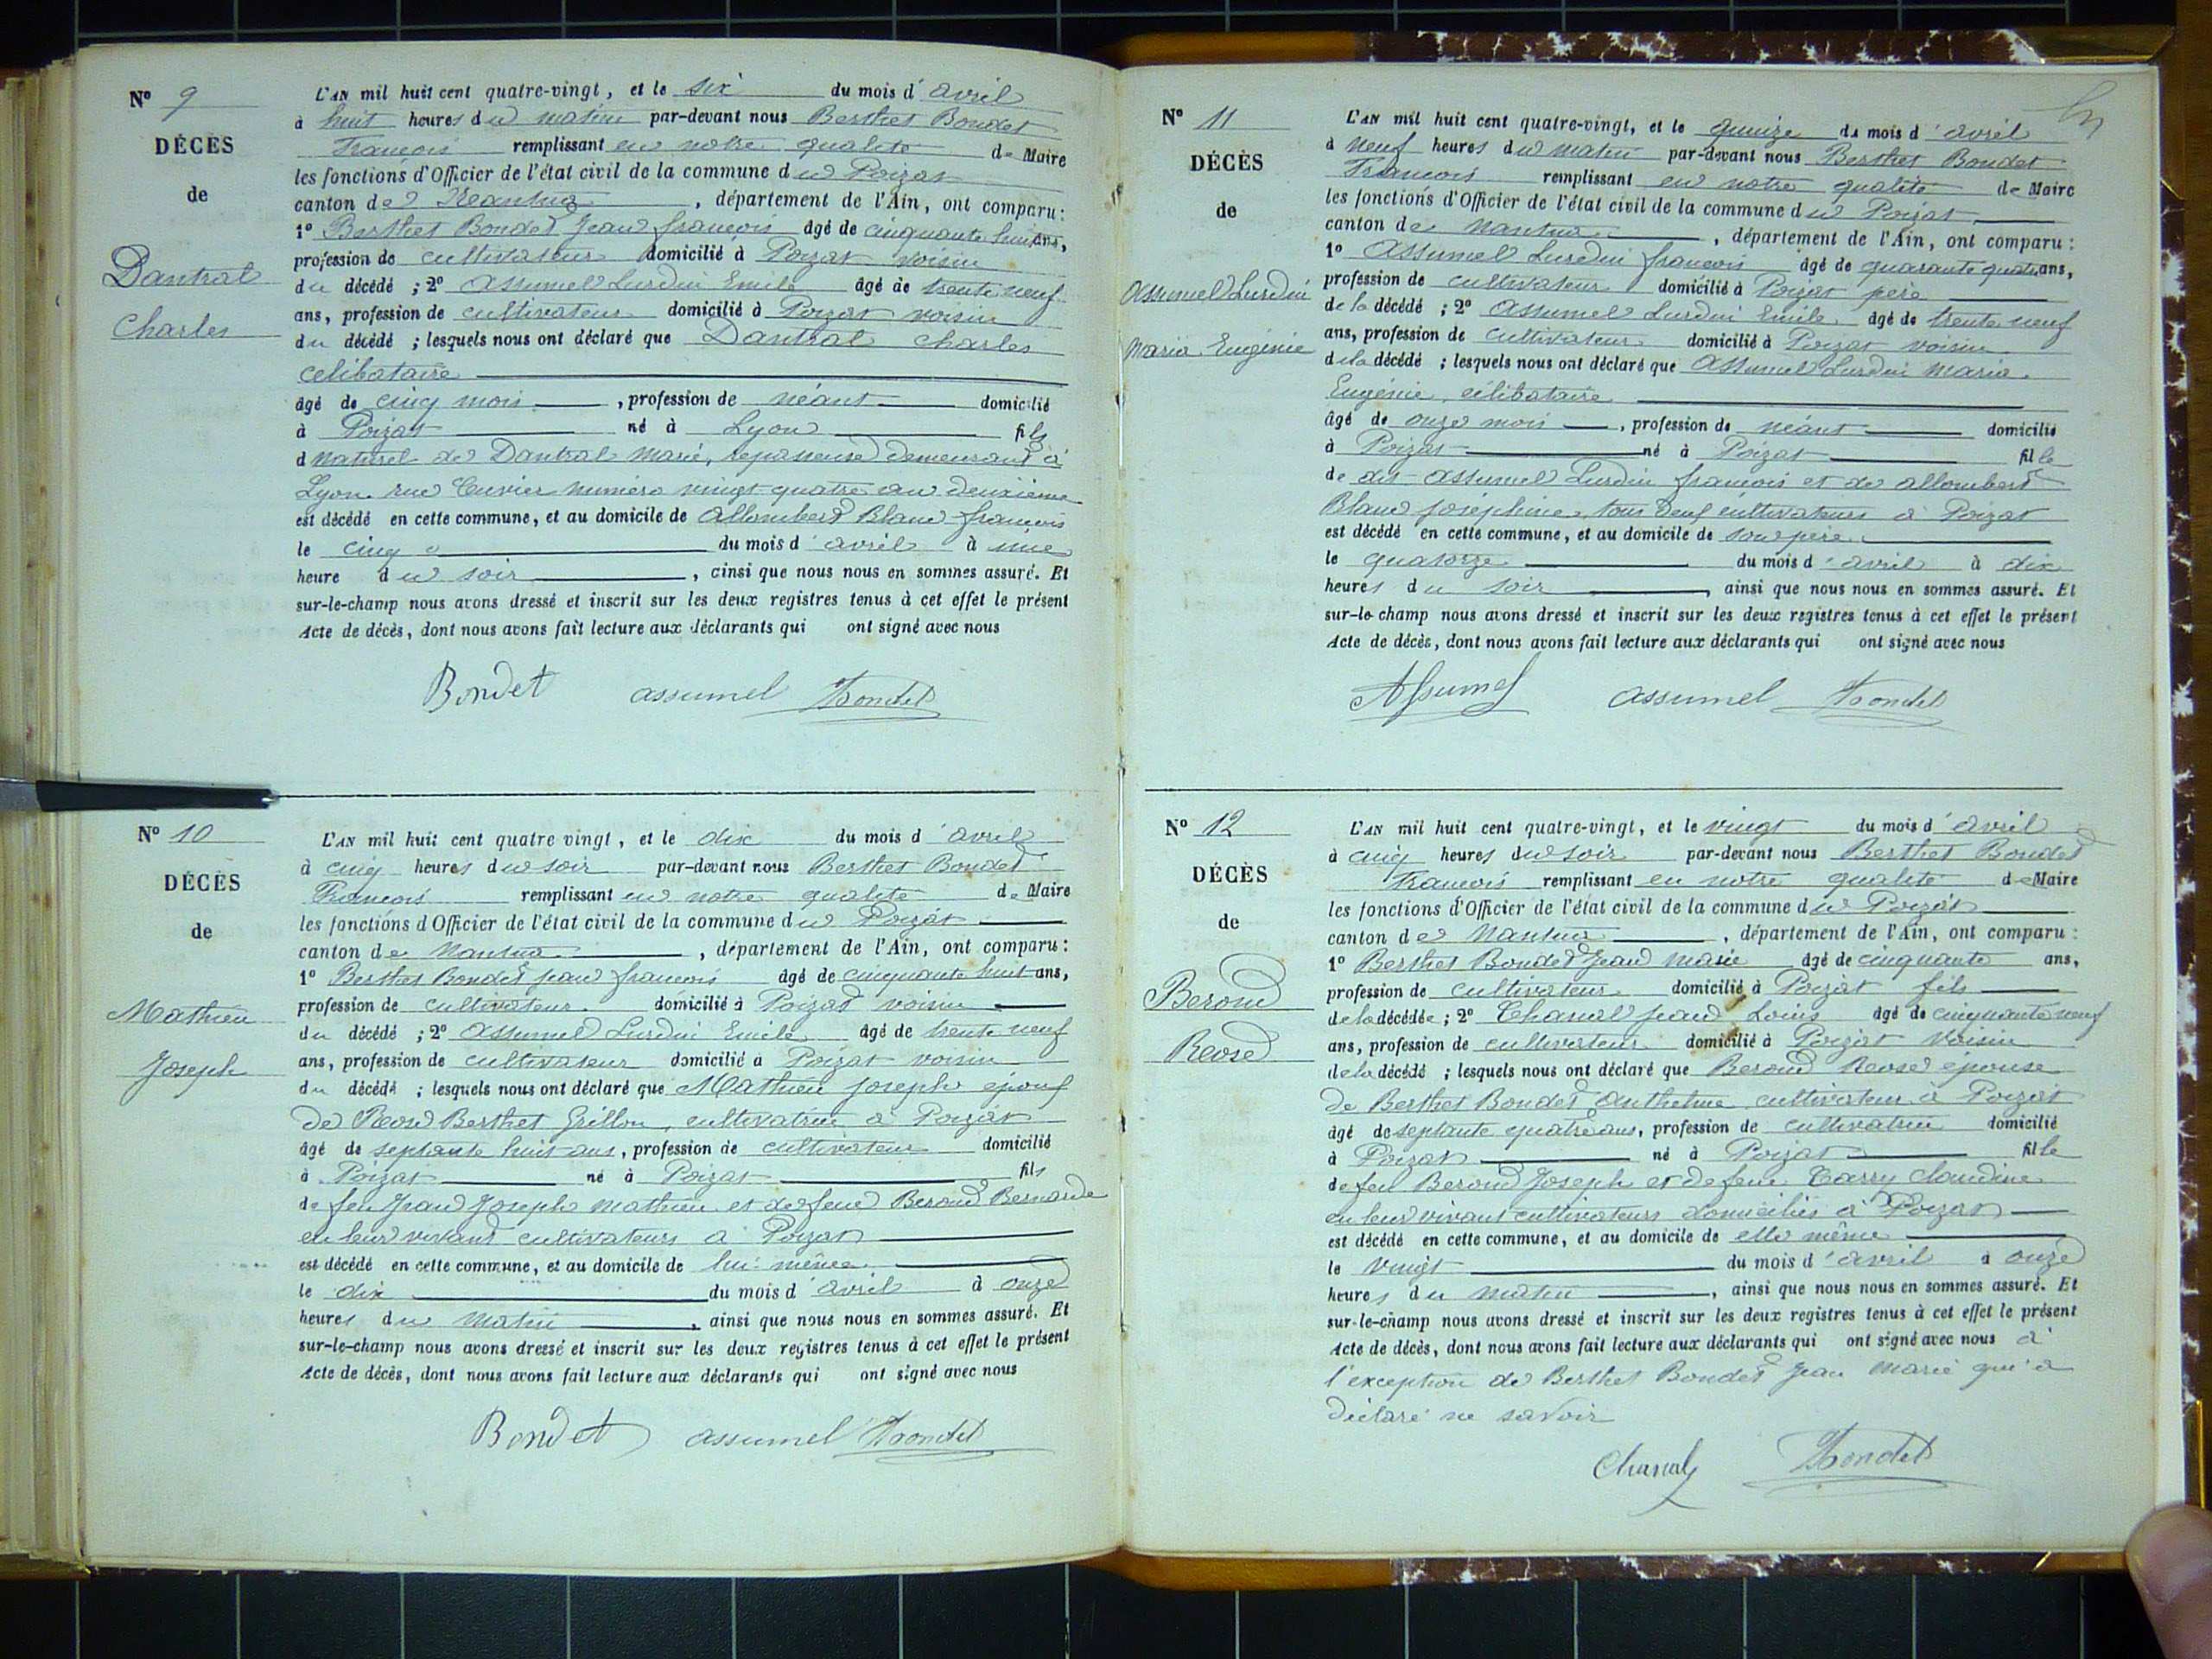 N° 9
DÉCÈS
de
Dantral
Charles
L'AN mil huit cent quatre-vingt, et le six du mois d'avril
à huit heures du matin par-devant nous Berthet Bondet
François remplissant en notre qualité de Maire
les fonctions d'Officier de l'état civil de la commune du Poizat
canton de Nantua, département de l'Ain, ont comparu :
1° Berthet Bondet Jean françois âgé de cinquante huit ans,
profession de cultivateur domicilié à Poizat voisin
du décédé ; 2° Assumel Lurdin Emile âgé de trente neuf
ans, profession de cultivateur domicilié à Poizat voisin
du décédé ; lesquels nous ont déclaré que Dantral Charles
célibataire
âgé de cinq mois, profession de néant domicilié
à Poizat né à Lyon fils
d naturel de Dantral Marie, repasseuse demeurant à
Lyon rue Cuvier numéro vingt-quatre au deuxième
est décédé en cette commune, et au domicile de Allombert Blanc françois
le cinq du mois d'avril à une
heure du soir, ainsi que nous nous en sommes assuré. Et
sur-le-champ nous avons dressé et inscrit sur les deux registres tenus à cet effet le présent
Acte de décès, dont nous avons fait lecture aux déclarants qui ont signé avec nous
Bondet assumel Bondet
N° 10
DÉCÈS
de
Mathieu
Joseph
L'AN mil huit cent quatre vingt, et le dix du mois d'avril
à cinq heures du soir par-devant nous Berthet Bondet
François remplissant en notre qualité de Maire
les fonctions d'Officier de l'état civil de la commune du Poizat
canton de Nantua, département de l'Ain, ont comparu :
1° Berthet Bondet jean françois âgé de cinquante huit ans,
profession de cultivateur domicilié à Poizat voisin
du décédé ; 2° Assumel Lurdin Emile âgé de trente neuf
ans, profession de cultivateur domicilié à Poizat voisin
du décédé ; lesquels nous ont déclaré que Mathieu joseph époux
de Rose Berthet Grillon, cultivatrice à Poizat
âgé de septante huit ans, profession de cultivateur domicilié
à Poizat né à Poizat fils
de feu Jean Joseph Mathieu et de feue Beroud Bernarde
en leur vivant cultivateurs à Poizat
est décédé en cette commune, et au domicile de lui-même
le dix du mois d'avril à onze
heures du matin, ainsi que nous nous en sommes assuré. Et
sur-le-champ nous avons dressé et inscrit sur les deux registres tenus à cet effet le présent
Acte de décès, dont nous avons fait lecture aux déclarants qui ont signé avec nous
Bondet assumel Bondet
N° 11
DÉCÈS
de
Assumel Lurdin
Maria Eugénie
L'AN mil huit cent quatre-vingt, et le quinze du mois d'avril
à neuf heures du matin par-devant nous Berthet Bondet
François remplissant en notre qualité de Maire
les fonctions d'Officier de l'état civil de la commune du Poizat
canton de Nantua, département de l'Ain, ont comparu :
1° Assumel Lurdin françois âgé de quarante quatre ans,
profession de cultivateur domicilié à Poizat père
de la décédé ; 2° Assumel Lurdin Emile âgé de trente neuf
ans, profession de cultivateur domicilié à Poizat voisin
de la décédé ; lesquels nous ont déclaré que Assumel Lurdin Maria
Eugénie, célibataire
âgé de onze mois, profession de néant domicilié
à Poizat né à Poizat fille
de dit Assumel Lurdin françois et de Allombert
Blanc joséphine, tous deux cultivateurs à Poizat
est décédé en cette commune, et au domicile de son père
le quatorze du mois d'avril à dix
heures du soir, ainsi que nous nous en sommes assuré. Et
sur-le-champ nous avons dressé et inscrit sur les deux registres tenus à cet effet le présent
Acte de décès, dont nous avons fait lecture aux déclarants qui ont signé avec nous
Assumel assumel Bondet
N° 12
DÉCÈS
de
Beroud
Rose
L'AN mil huit cent quatre-vingt, et le vingt du mois d'avril
à cinq heures du soir par-devant nous Berthet Bondet
François remplissant en notre qualité de Maire
les fonctions d'Officier de l'état civil de la commune du Poizat
canton de Nantua, département de l'Ain, ont comparu :
1° Berthet Bondet Jean Marie âgé de cinquante ans,
profession de cultivateur domicilié à Poizat fils
de la décédée ; 2° Chanal jean Louis âgé de cinquante neuf
ans, profession de cultivateur domicilié à Poizat voisin
de la décédé ; lesquels nous ont déclaré que Beroud Rose épouse
de Berthet Bondet Anthelme cultivateur à Poizat
âgé de septante quatre ans, profession de cultivatrice domicilié
à Poizat né à Poizat fille
de feu Beroud Joseph et de feue Carry Claudine
en leur vivant cultivateurs domiciliés à Poizat
est décédé en cette commune, et au domicile de elle même
le vingt du mois d'avril à onze
heures du matin, ainsi que nous nous en sommes assuré. Et
sur-le-champ nous avons dressé et inscrit sur les deux registres tenus à cet effet le présent
Acte de décès, dont nous avons fait lecture aux déclarants qui ont signé avec nous à
l'exception de Berthet Bondet Jean Marie qui a
déclaré ne savoir
Chanal Bondet